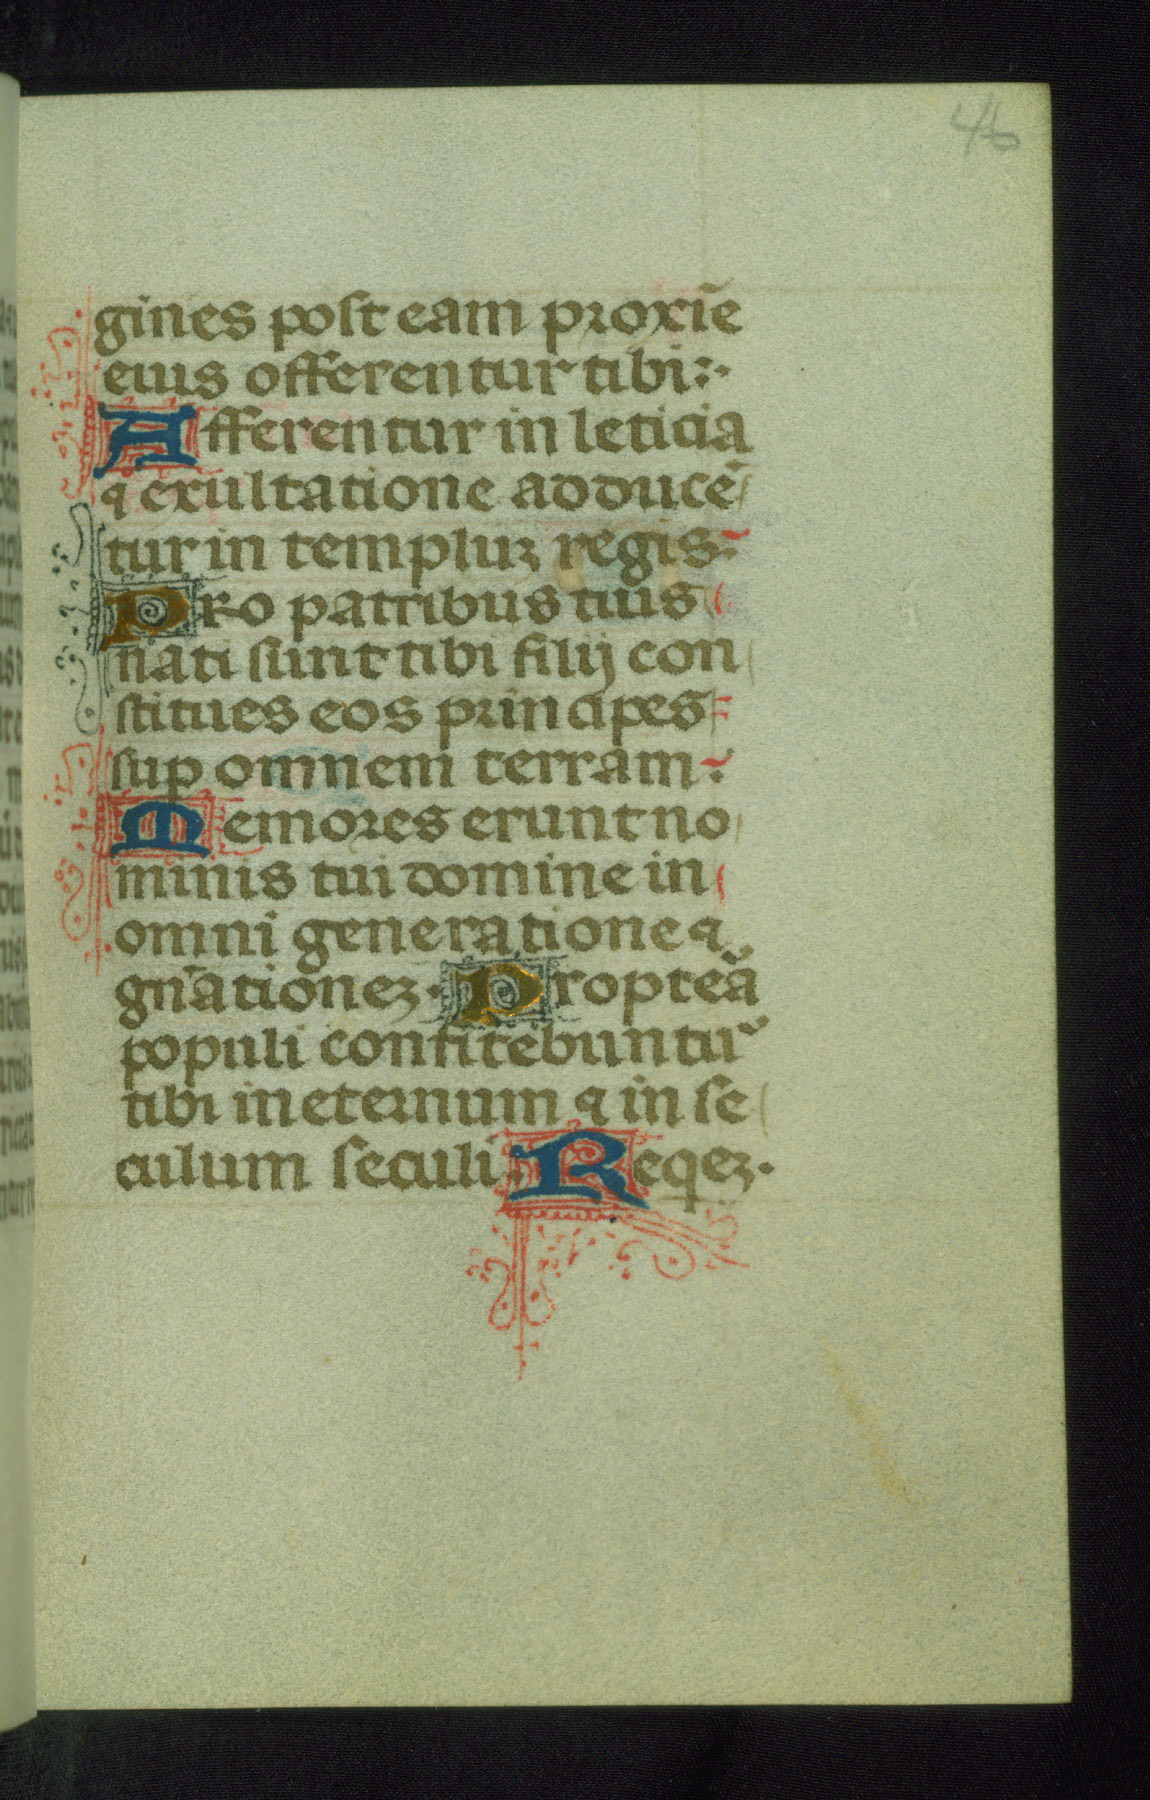 46
gines post eam proxiē
eius offerentur tibi:·
Afferentur in leticia
⁊ exultatione adducē
tur in templuꝫ regis:
Pro patribus tuis
nati sunt tibi filij con
stitues eos principes
suꝑ omnem terram:
Memores erunt no
minis tui domine in
omni generatione ⁊
gn̄ationeꝫ· Propteā
populi confitebuntur
tibi in eternum ⁊ in se
culum seculi· Reqeꝫ·